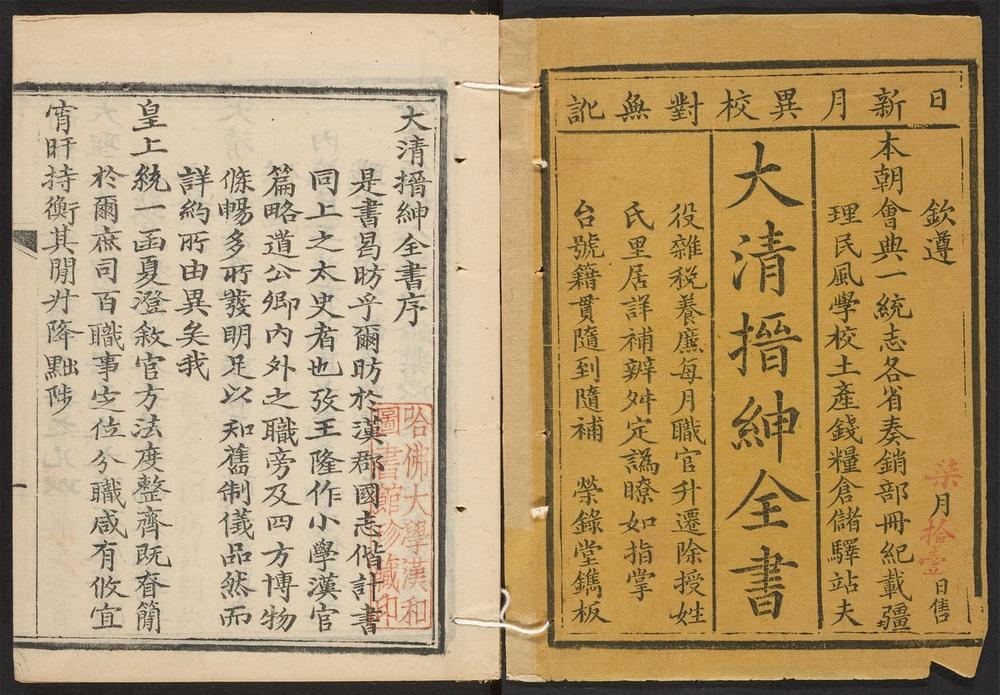 日新月異校對無訛
欽遵
本朝會典一統志各省奏銷部冊紀載疆
理民風學校土產錢糧倉儲驛站夫
柒月拾壹日售
大清搢紳全書
役雜稅養廉每月職官升遷除授姓
氏里居詳補辨舛定譌瞭如指掌
台號籍貫隨到隨補 榮錄堂鐫板
大清搢紳全書序
是書昌昉乎爾昉於漢郡國志偕計書
同上之太史者也攷王隆作小學漢官
篇略道公卿內外之職旁及四方博物
條暢多所發明足以知舊制儀品然而
詳約所由異矣我
皇上統一函夏澄敘官方法度整齊既脊簡
於爾庶司百職事㝎位分職咸有攸宜
宵旰持衡其閒升降黜陟
哈佛大學漢和
圖書館珍藏印